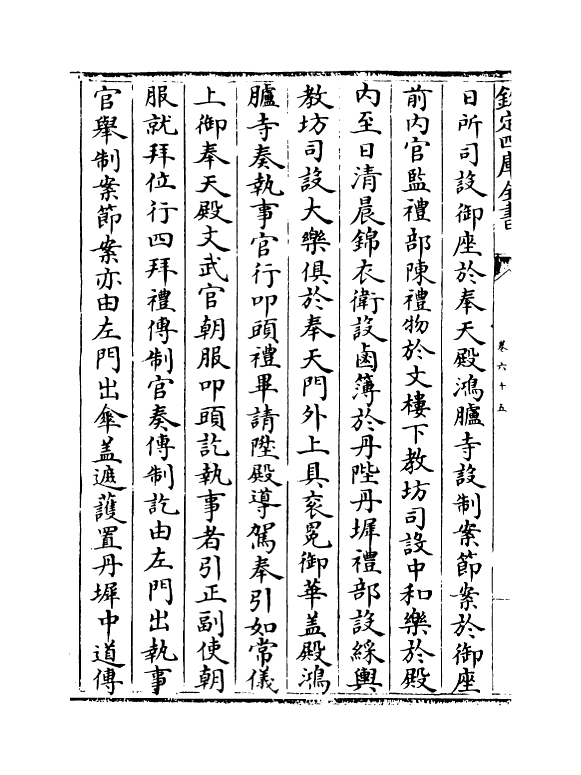 欽定四庫全書
卷六十五
日所司設御座於奉天殿鴻臚寺設制案節案於御座
前內官監禮部陳禮物於文樓下教坊司設中和樂於殿
內至日清晨錦衣衛設鹵簿於丹陛丹墀禮部設綵輿
教坊司設大樂俱於奉天門外上具袞冕御華盖殿鴻
臚寺奏執事官行叩頭禮畢請陞殿導駕奉引如常儀
上御奉天殿文武官朝服叩頭訖執事者引正副使朝
服就拜位行四拜禮傳制官奏傳制訖由左門出執事
官舉制案節案亦由左門出傘盖遮護置丹墀中道傳